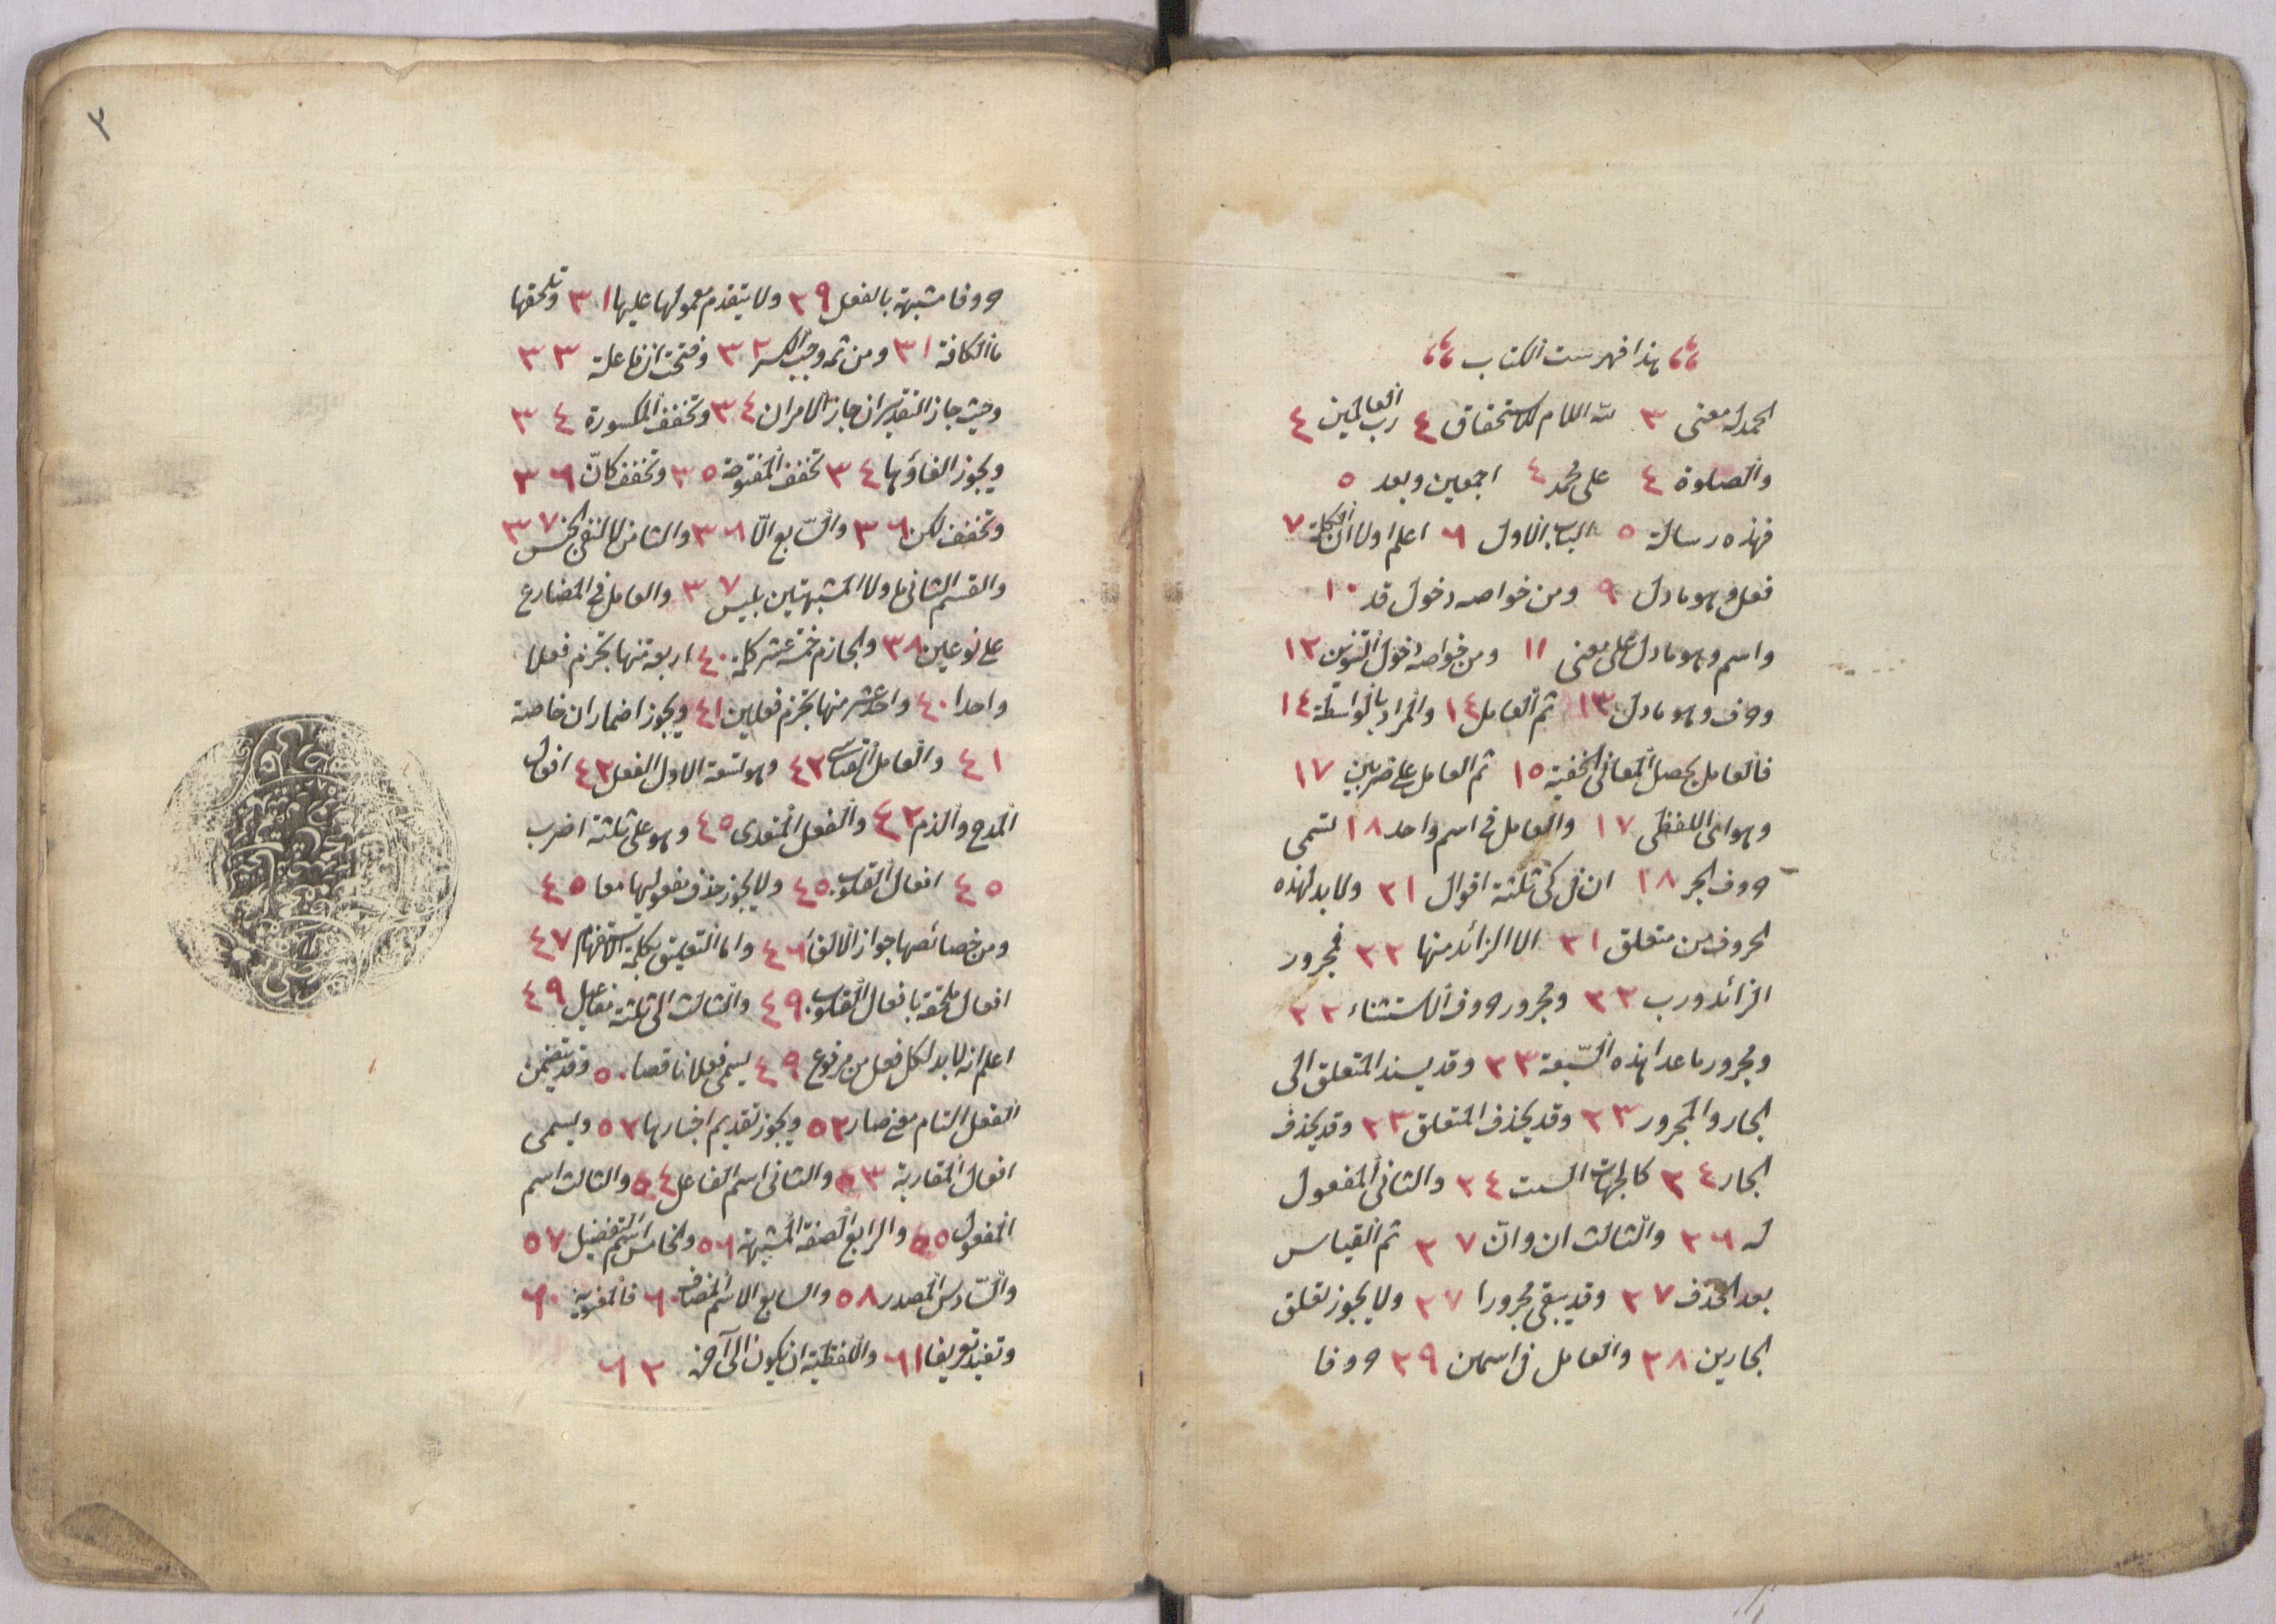 هذا فهرست الكتاب
الحمدله معنى ٣ لله اللام للاستحقاق ٤ رب العالمين ٤
والصلوة ٤ على محمد ٤ اجمعين وبعد ٥
فهذه رسالة ٥ الباب الاول ٦ اعلم اولا ان الكلمة ٧
فعل وهو مادل ٩ ومن خواصه دخول قد ١٠
واسم وهو مادل على معنى ١١ ومن خواصه دخول التنوين ١٢
وحرف وهو مادل ١٣ ثم العامل ١٤ والمراد بالواسطة ١٤
فالعامل يحصل المعانى الخفية ١٥ ثم العامل على ضربين ١٧
وهو اى اللفظى ١٧ والعامل فى اسم واحد ١٨ تسمى
حروف الجر ١٨ ان فى كى ثلثة اقوال ٢١ ولا بد لهذه
الحروف من متعلق ٢١ الا الزائد منها ٢٢ فمجرور
الزائد ورب ٢٢ ومجرور حروف الاستثناء ٢٢
ومجرور ما عدا هذه السّبعة ٢٣ وقد يسند المتعلق الى
الجار والمجرور ٢٣ وقد يحذف المتعلق ٢٣ وقد يحذف
الجار ٢٤ كالجهات الست ٢٤ والثانى المفعول
له ٢٦ والثالث ان وانّ ٢٧ ثم القياس
بعد الحذف ٢٧ وقد يبقى مجرورا ٢٧ ولا يجوز تعلق
الجارين ٢٨ والعامل فى اسمين ٢٩ حروفا
٢
حروفا مشبهة بالفعل ٢٩ ولا يتقدم معمولها عليها ٣١ وتلحقها
ما الكافة ٣١ ومن ثمه وجب الكسر ٣٢ وفتحت ان فاعلة ٣٣
وحيث جاز التقديران جاز الامران ٣٤ وتخفف المكسورة ٣٤
ويجوز الغاؤها ٣٤ تخفف المفتوحة ٣٥ وتخفف كانّ ٣٦
وتخفف لكن ٣٦ والسّابع الّا ٣٦ والثامن لا لنفى الجنس ٣٧
والقسم الثانى ما ولا المشبهتين بليس ٣٧ والعامل فى المضارع
على نوعين ٣٨ والجازم خمسة عشر كلمة ٤٠ اربعة منها تجزم فعلا
واحدا ٤٠ واحد عشر منها تجزم فعلين ٤١ ويجوز اضمار ان خاصة
٤١ والعامل القياسى ٤٢ وهو تسعة الاول الفعل ٤٢ افعال
المدح والذم ٤٢ والفعل المتعدى ٤٥ وهو على ثلثة اضرب
٤٥ افعال القلوب ٤٥ ولا يجوز حذف مفعوليها معا ٤٥
ومن خصائصها جواز الالغاء ٤٦ واما التعليق بكلمة الاستفهام ٤٧
افعال ملحقة بافعال القلوب ٤٩ والثالث الى ثلثة مفاعيل ٤٩
اعلم انه لا بد لكل فعل من مرفوع ٤٩ يسمى فعلا ناقصا ٥٠ وقد يتضمن
الفعل التام معنى صار ٥٢ ويجوز تقديم اخبارها ٥٢ ويسمى
افعال المقاربة ٥٣ والثانى اسم الفاعل ٥٤ والثالث اسم
المفعول ٥٥ والرابع الصفة المشبهة ٥٦ والخامس اسم التفضيل ٥٧
والسّادس المصدر ٥٨ والسابع الاسم المضاف ٦٠ فالمعنوية ٦٠
وتفيد تعريفا ٦١ واللفظية ان يكون الى آخره ٦٢